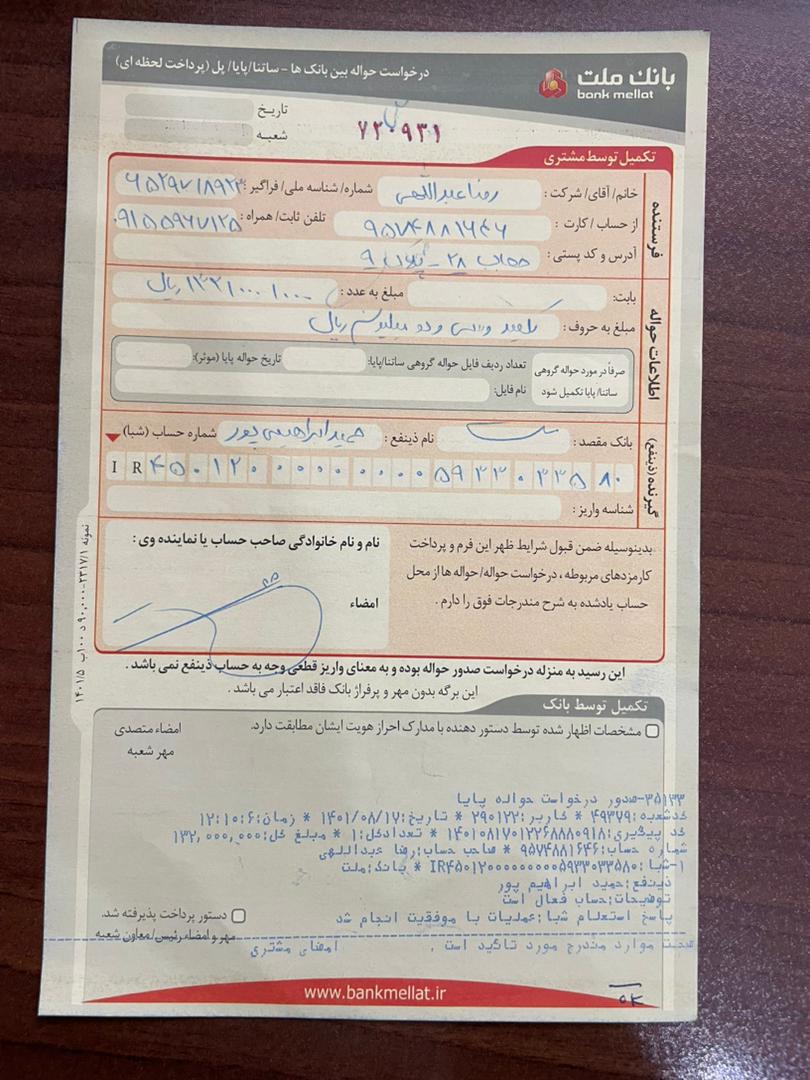 بانک ملت
bank mellat
درخواست حواله بین بانک ها - ساتنا/پایا/ پل (پرداخت لحظه ای)
تاریخ
شعبه
۷۲۰۹۳۱
تکمیل توسط مشتری
فرستنده
خانم/ آقای/ شرکت: رضا عبداللهی شماره/ شناسه ملی/ فراگیر:
از حساب/ کارت: ۹۵۷۴۸۸۱۶۴۶ تلفن ثابت/ همراه: ۰۹۱۵۵۹۶۷۱۲۵
آدرس و کد پستی: ۲۸ - پلاک ۹
اطلاعات حواله
بابت: مبلغ به عدد: ریال
مبلغ به حروف: یکصد و سی و دو میلیون ریال
صرفاً در مورد حواله گروهی ساتنا/ پایا تکمیل شود
تعداد ردیف فایل حواله گروهی ساتنا/پایا: تاریخ حواله پایا (موثر):
نام فایل:
گیرنده (ذینفع)
بانک مقصد: ملت نام ذینفع: حمید ابراهیمی پور شماره حساب (شبا)
IR ۴۵۰۱۲۰۰۰۰۰۰۰۰۰۰۵۹۳۳۰۳۳۵۸۰
شناسه واریز:
بدینوسیله ضمن قبول شرایط ظهر این فرم و پرداخت
کارمزدهای مربوطه، درخواست حواله/ حواله ها از محل
حساب یادشده به شرح مندرجات فوق را دارم.
نام و نام خانوادگی صاحب حساب یا نماینده وی:
امضاء
نمونه ۲۳۱۷/۱-۹۰،۰۰۰ د ۱۰۰ ب ۱۴۰۱/۵
این رسید به منزله درخواست صدور حواله بوده و به معنای واریز قطعی وجه به حساب ذینفع نمی باشد.
این برگه بدون مهر و پرفراژ بانک فاقد اعتبار می باشد.
تکمیل توسط بانک
مشخصات اظهار شده توسط دستور دهنده با مدارک احراز هویت ایشان مطابقت دارد.
امضاء متصدی
مهر شعبه
۳۵۱۳۳-صدور درخواست حواله پایا
کدشعبه:۴۹۳۷۹ * کاربر:۲۹۰۱۲۲ * تاریخ:۱۴۰۱/۰۸/۱۷ * زمان:۱۲:۱۰:۶
کد پیگیری:۱۴۰۱۰۸۱۷۰۱۲۲۶۸۸۸۰۹۱۸ * تعدادکل:۱ * مبلغ کل:۱۳۲,۰۰۰,۰۰۰
شماره حساب:۹۵۷۴۸۸۱۶۴۶ * صاحب حساب:رضا عبداللهی
۱-شبا:IR۴۵۰۱۲۰۰۰۰۰۰۰۰۰۰۵۹۳۳۰۳۳۵۸۰ * بانک:ملت
ذینفع:حمید ابراهیم پور
توضیحات:حساب فعال است
پاسخ استعلام شبا:عملیات با موفقیت انجام شد
دستور پرداخت پذیرفته شد.
مهر و امضاء رئیس/ معاون شعبه
صحت موارد مندرج مورد تائید است . امضای مشتری
www.bankmellat.ir